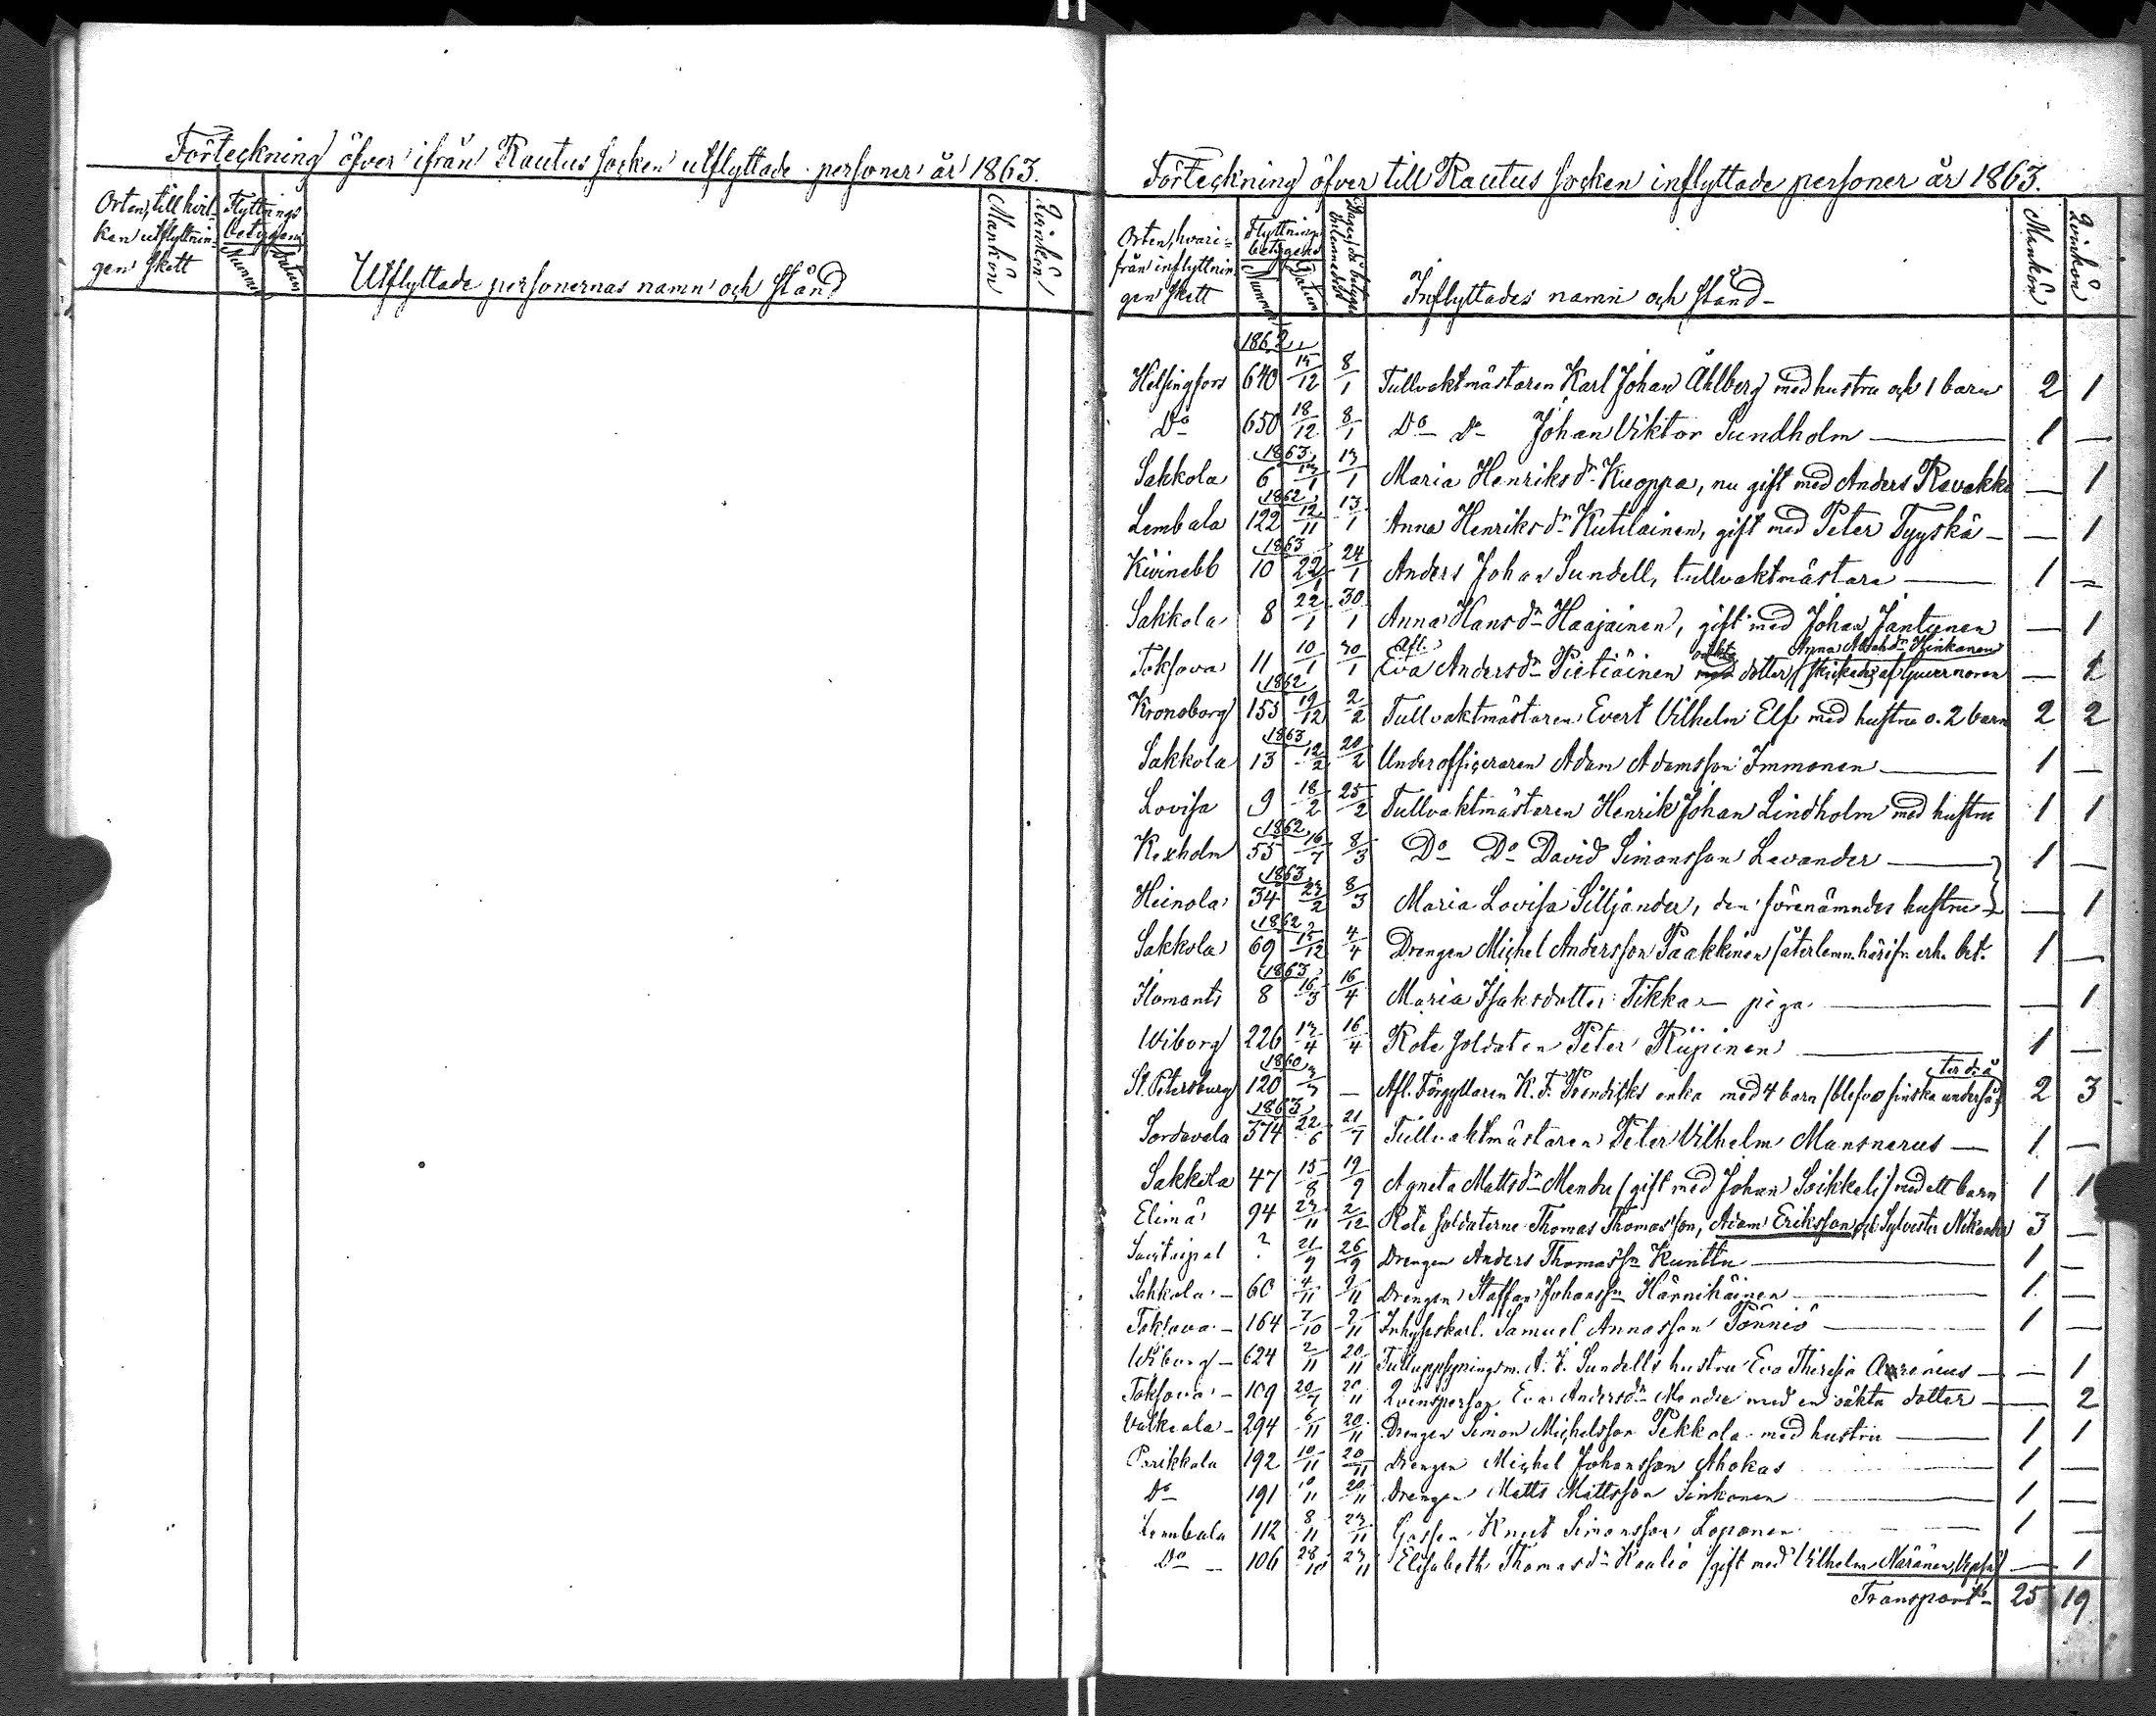 Förteckning öfver ifrån Rautus socken utflyttade personer år 1863.
Orten, till hvil-
ken utflyttnin-
gen skett
Flyttnings
betygens
Nummer
Datum
Utflyttade personernas namn och stånd
Mankön
Qvinkön
Förteckning öfver till Rautus socken inflyttade personer år 1863.
Orten, hvari-
från inflyttnin-
gen skett
Flyttnings
betygens
Nummer
Datum
Dagen då betyget
inlemnades
Inflyttades namn och stånd
Mankön
Qvinkön
1862
Helsingfors 640 15/12 8/1 Tullvaktmästaren Karl Johan Åhlberg med hustru och 1 barn 2 1
Do 650 18/12 8/1 Do Do Johan Viktor Sundholm 1 —
1863
Sakkola 6 13/1 13/1 Maria Henriksdr Kuoppa, nu gift med Anders Ravakka — 1
1862
Lembala 122 12/11 13/1 Anna Henriksdr Kutilainen, gift med Peter Tyyskä — 1
1863
Kivinebb 10 22/1 24/1 Anders Johan Sundell, tullvaktmästare 1 —
Sakkola 8 22/1 30/1 Anna Hansdr Haajainen, gift med Johan Jantunen — 1
Afl. oäkta Anna Abrahdr Hinkanen
Toksova 11 10/1 30/1 Eva Andersdr Pietiäinen dotter / skickad af Guvernören —
1862
Kronoborg 153 19/12 2/2 Tullvaktmästaren Evert Vilhelm Elf med hustru o. 2 barn 2 2
1863
Sakkola 13 12/2 20/2 Underofficeraren Adam Adamsson Immonen 1 —
Lovisa 9 18/2 25/2 Tullvaktmästaren Henrik Johan Lindholm med hustru 1 1
1862
Kexholm 55 16/7 8/3 Do Do David Simonsson Levander 1 —
1863
Heinola 34 23/2 8/3 Maria Lovisa Silljander, den förenämndes hustru — 1
1862
Sakkola 69 15/12 4/4 Drengen Michel Andersson Paakkinen /återlemn. härifr. erh. bet. 1 —
1863
Ilomants 8 16/3 16/4 Maria Isaksdotter Tikka — piga — 1
Wiborg 226 13/4 16/4 Rote soldaten Peter Kiipinen 1 —
1860
St. Petersburg 120 3/7 — Afl. Förgyllaren K. F. enka med 4 barn /blefvo finska undersåter 2 3
1863
Sordavala 374 22/6 21/7 Tullvaktmästaren Peter Vilhelm Mansnerus 1 —
Sakkola 47 15/8 19/9 Agneta Mattsdr Mendu /gift med Johan Soikkeli/ med ett barn 1 1
Elimä 94 23/11 2/12 Rote soldaterne Thomas Thomasson, Adam Eriksson och Sylvester Nikander 3 —
Savitaipal ? 21/9 26/9 Drengen Anders Thomassn Kunttu 1 —
Sakkola 60 4/11 9/11 Drengen Staffan Johanssn Härnihäinen 1 —
Toksova 164 7/10 9/11 Inhyseskarl. Samuel Annasson Pönniö 1 —
Wiborg 624 2/11 20/11 Tulluppsyningsm. A. J. Sundells hustru Eva Theresia — 1
Toksova 109 20/7 20/11 Qvinsperson Eva Andersdr Mendu med en oäkta dotter — 2
Valkeala 294 6/11 20/11 Drengen Simon Michelsson Pekkola med hustru 1 1
Parikkala 192 10/11 20/11 Drengen Michel Johansson Ahokas 1 —
Do 191 10/11 20/11 Drengen Matts Mattsson Sinkonen 1 —
Lembala 112 8/11 23/11 Gossen Knut Simonsson Loponen 1 —
Do 106 28/10 23/11 Elisabeth Thomasdr Kaalio /gift med Vilhelm Näränen, — 1
Transport 25 19